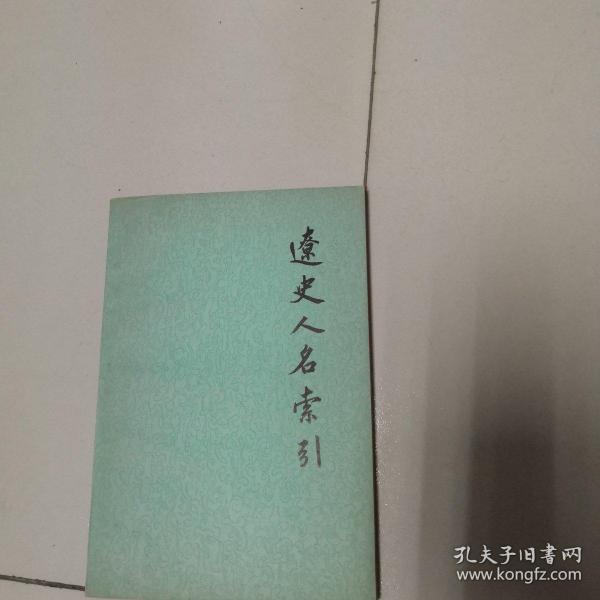 遼史人名索引
孔夫子旧書网
www.kongfz.com